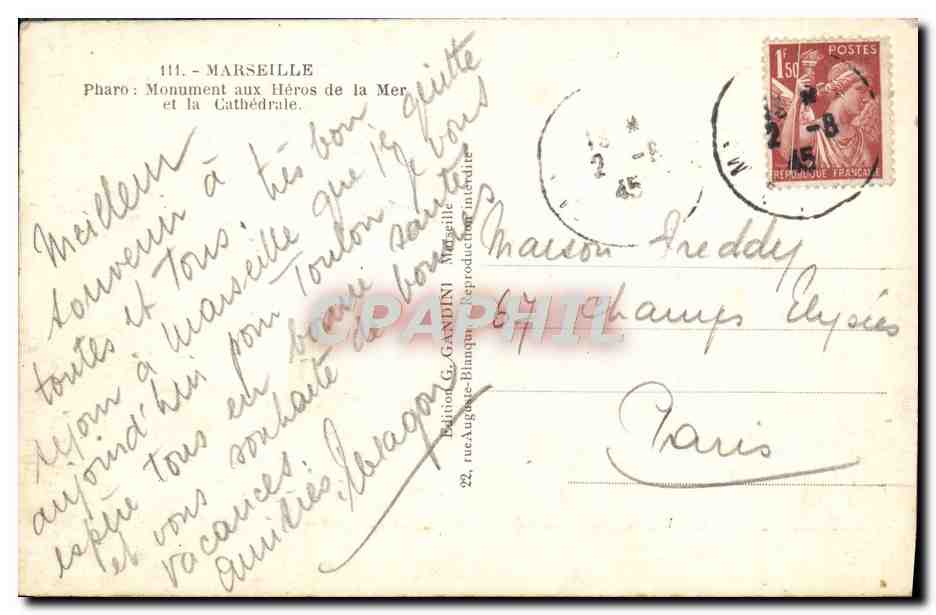 111. - MARSEILLE
Pharo : Monument aux Héros de la Mer
et la Cathédrale.
Meilleur
souvenir à
toutes et tous. très bon
séjour à Marseille que je quitte
aujourd'hui pour Toulon. Je vous
espère tous en bonne santé
et vous souhaite de bonnes
vacances.
Amitiés.
Edition G. GANDINI Marseille
22, rue Auguste-Blanqui Reproduction interdite
1F50
POSTES
RÉPUBLIQUE FRANÇAISE
2 -8
45
2 -8
45
Maison Freddy
67 Champs Elysées
Paris
CPAPHIL